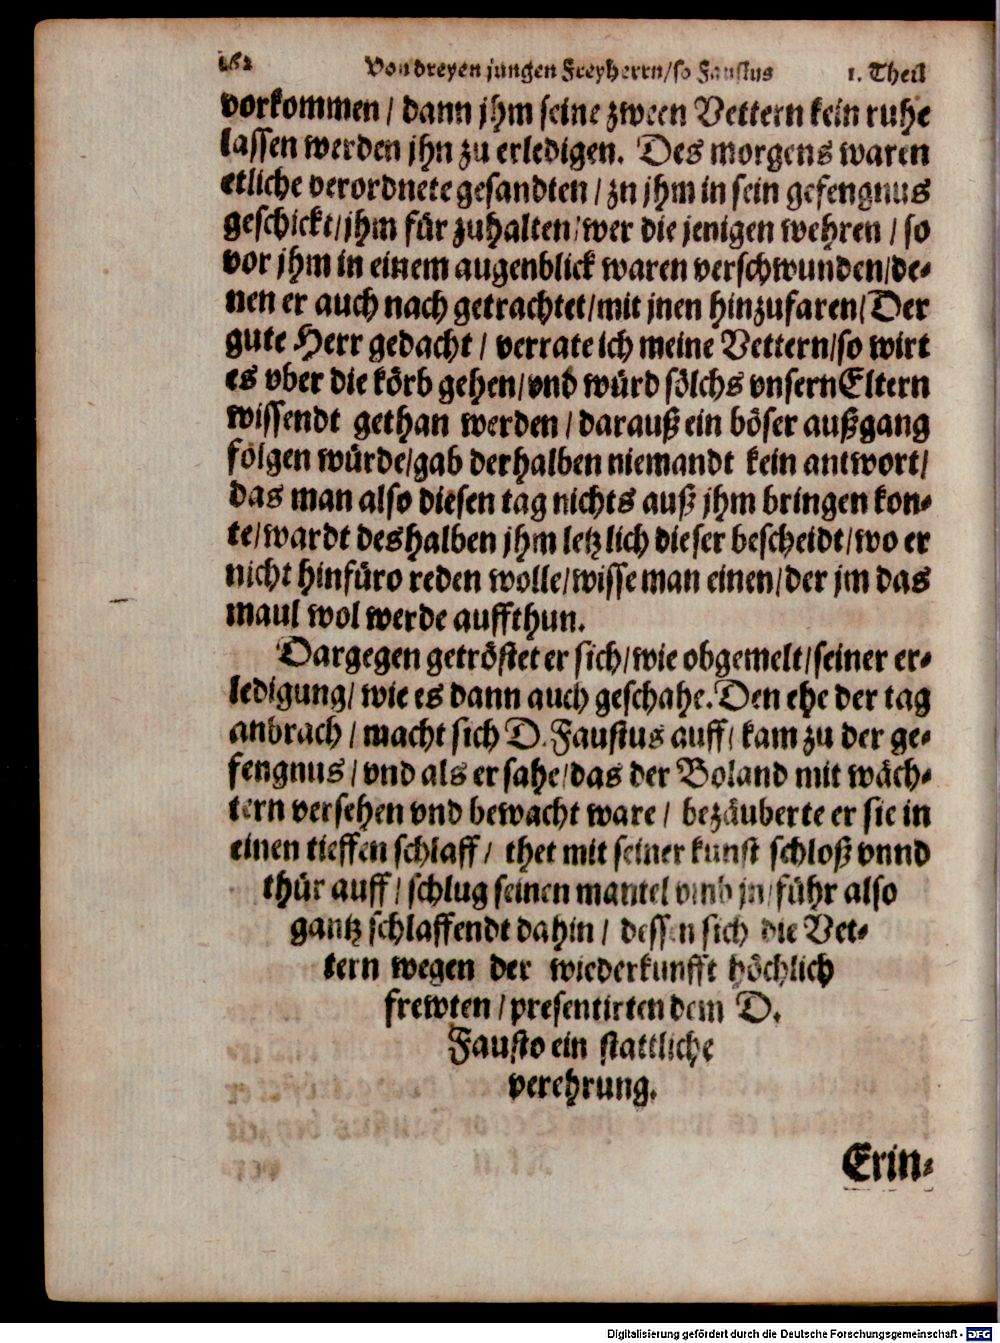 162 Von dreyen jungen Freyherrn/so Faustus 1. Theil
vorkommen / dann jhm seine zween Vettern kein ruhe
lassen werden jhn zu erledigen. Des morgens waren
etliche verordnete gesandten / zn jhm in sein gefengnus
geschickt/jhm für zuhalten/wer die jenigen wehren / so
vor jhm in einem augenblick waren verschwunden/de-
nen er auch nach getrachtet/mit jnen hinzufaren/Der
gute Herr gedacht / verrate ich meine Vettern/so wirt
es vber die körb gehen/vnd würd sölchs vnsern Eltern
wissendt gethan werden / darauß ein böser außgang
folgen würde/gab derhalben niemandt kein antwort/
das man also diesen tag nichts auß jhm bringen kon-
te/wardt deshalben jhm letzlich dieser bescheidt/wo er
nicht hinfüro reden wolle/wisse man einen/der jm das
maul wol werde auffthun.
Dargegen getröstet er sich/wie obgemelt/seiner er-
ledigung/ wie es dann auch geschahe. Den ehe der tag
anbrach / macht sich D. Faustus auff/ kam zu der ge-
fengnus / vnd als er sahe/das der Boland mit wäch-
tern versehen vnd bewacht ware / bezäuberte er sie in
einen tieffen schlaff / thet mit seiner kunst schloß vnnd
thür auff / schlug seinen mantel vmb jn/führ also
gantz schlaffendt dahin / dessen sich die Vet-
tern wegen der wiederkunfft höchlich
frewten / presentirten dem D.
Fausto ein stattliche
verehrung.
Erin-
Digitalisierung gefördert durch die Deutsche Forschungsgemeinschaft - DFG